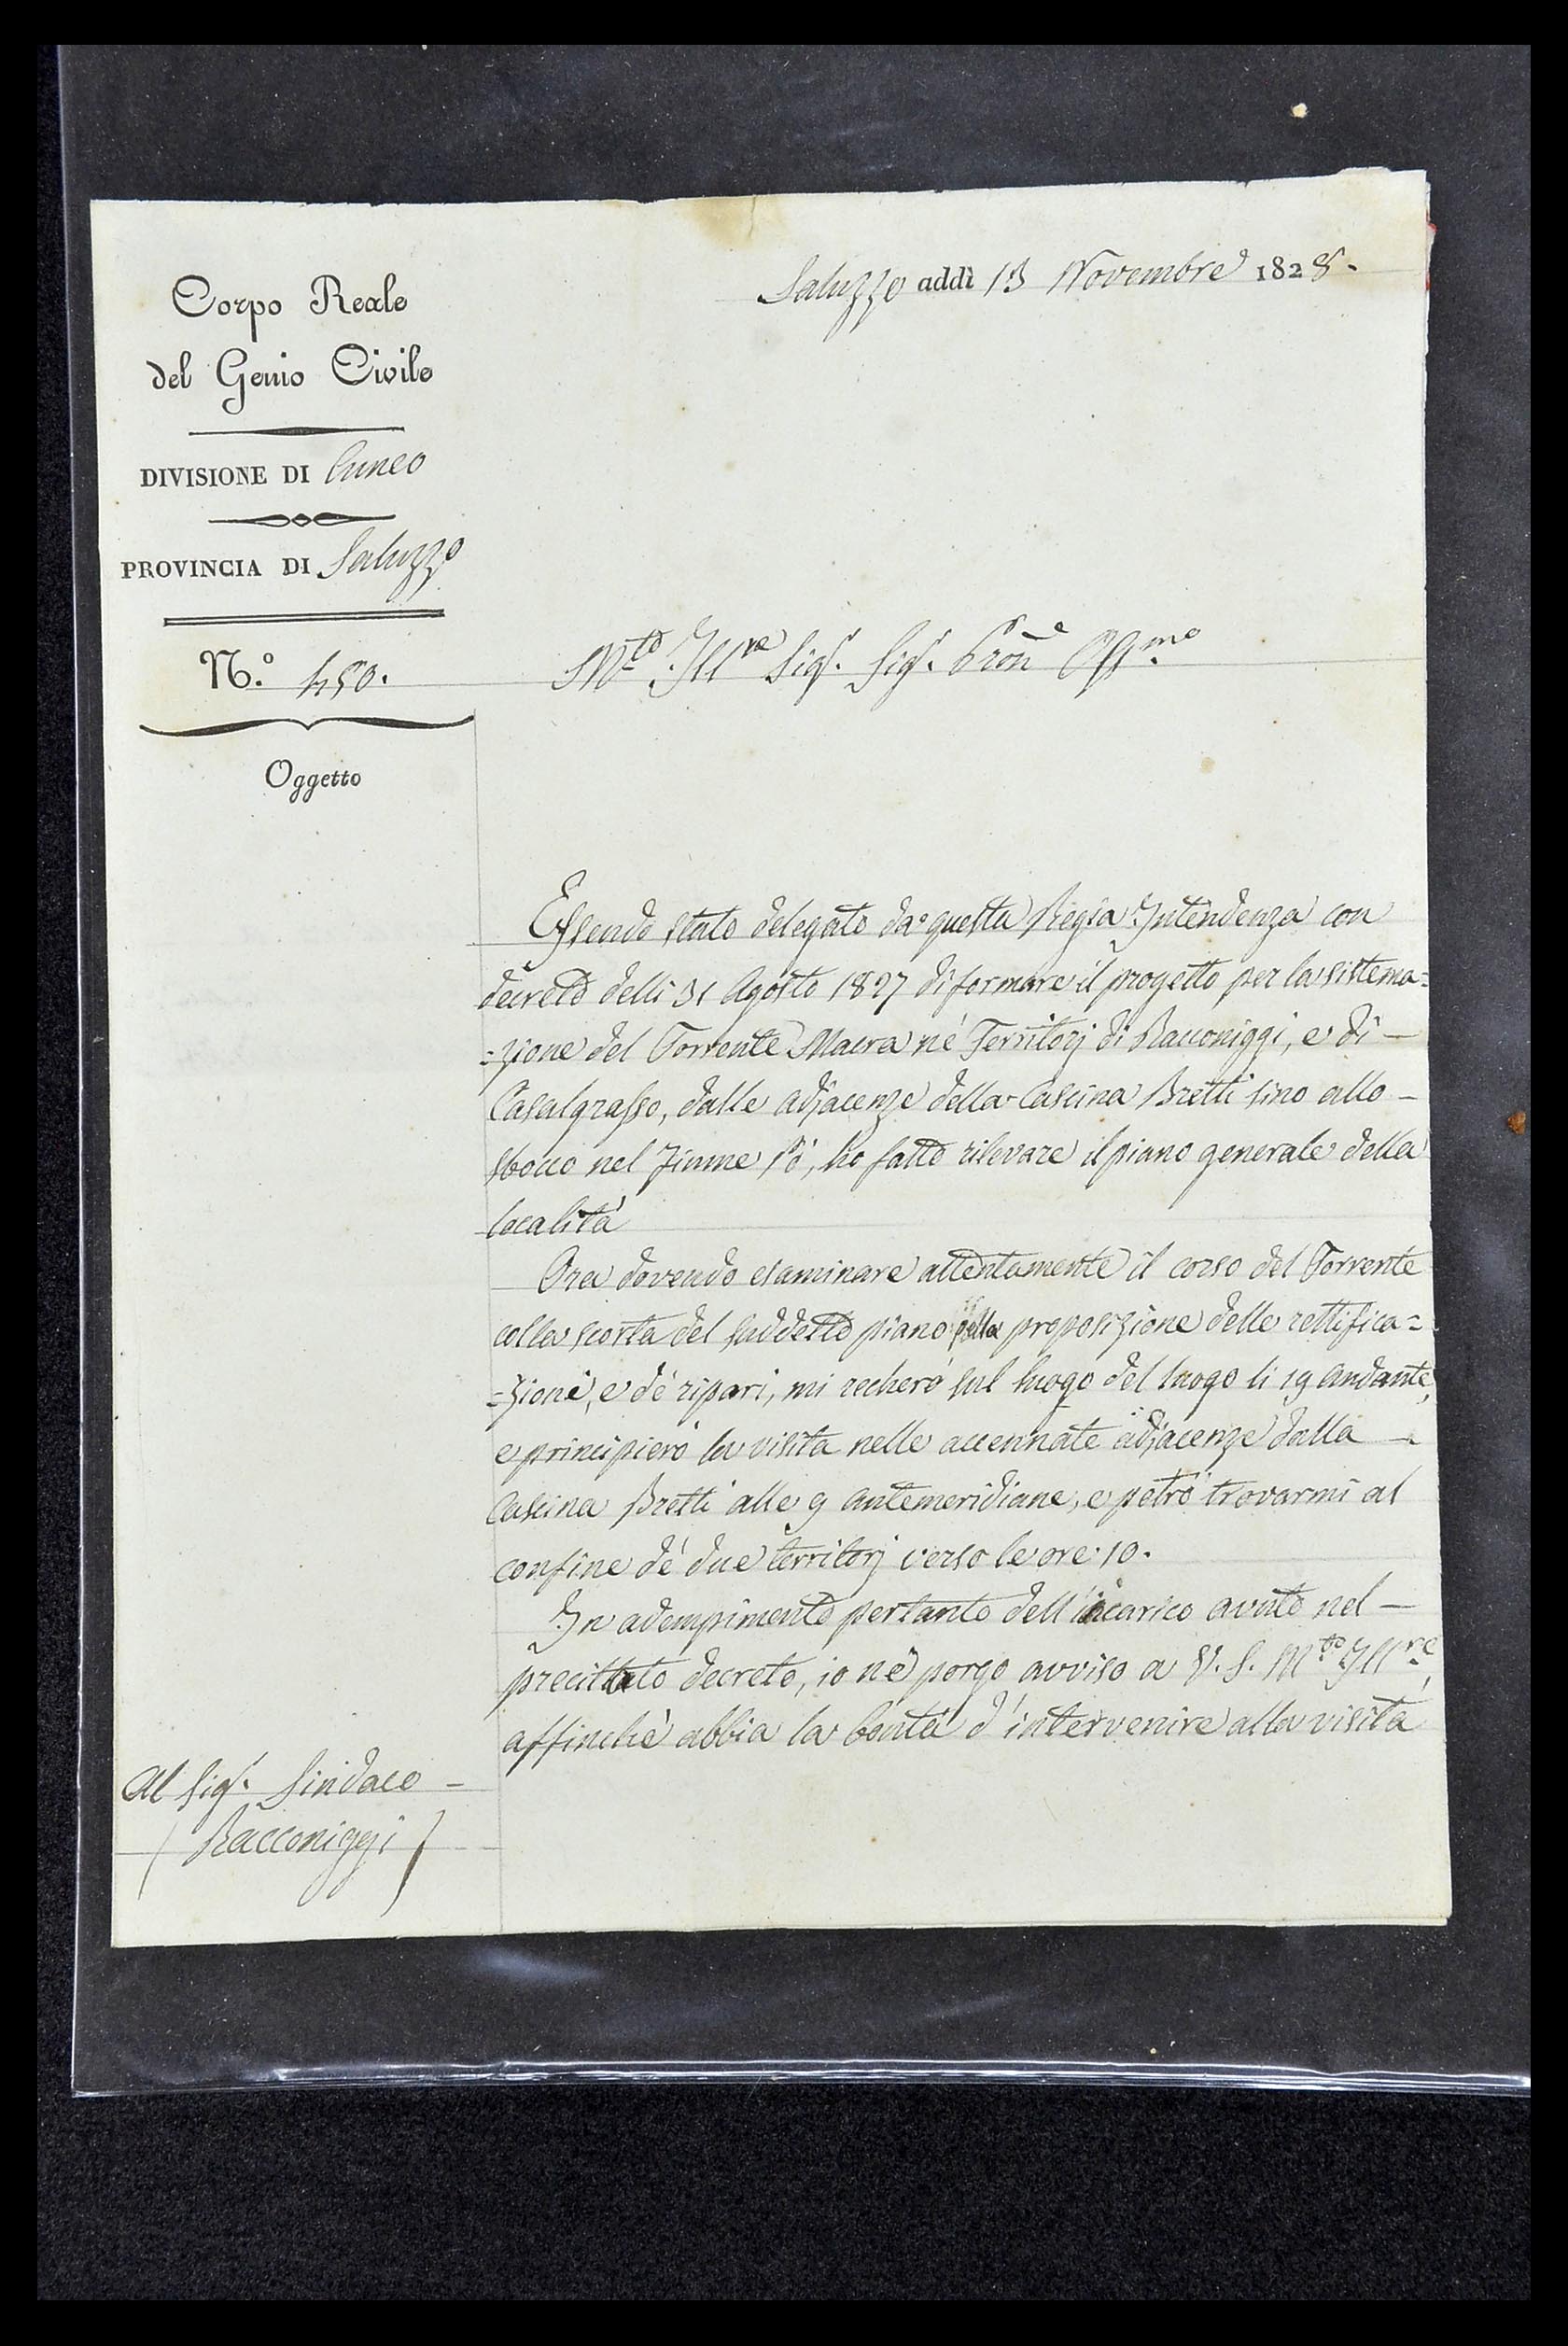 Saluzzo addì 13 Novembre 1828.
Corpo Reale
del Genio Civile
DIVISIONE DI Cuneo
PROVINCIA DI Saluzzo
N.º 450.
Oggetto
M.to Ill.re Sig.r Sig.r Pron.e Oss.mo
Essendo stato delegato da questa Regia Intendenza con
decreto delli 31 Agosto 1827 di formare il progetto per la sistema=
=zione del Torrente Macra né Territorj di Racconiggi, e di —
Casalgrasso, dalle adjacenze della Cascina Bretti sino allo —
sbocco nel fiume Pò, ho fatto rilevare il piano generale della
località
Ora dovendo esaminare attentamente il corso del Torrente
colla scorta del suddetto piano pella proposizione delle rettifica=
=zioni, e dé ripari, mi recherò sul luogo del luogo li 19 andante,
e principierò la visita nelle accennate adjacenze dalla —
Cascina Bretti alle 9 antemeridiane, e potrò trovarmi al
confine dé due territorj verso le ore 10.
In adempimento pertanto dell'incarico avuto nel —
precittato decreto, io ne porgo avviso a V. S. M.to Ill.re,
affinchè abbia la bontà d'intervenire alla visita
Al Sig.r Sindaco —
( Racconiggi )